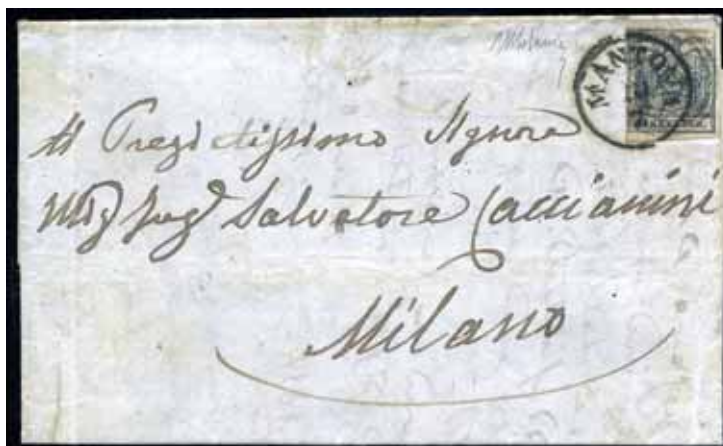 MANTOVA
Al Pregiatissimo Signore
Salvatore Caccianini
Milano